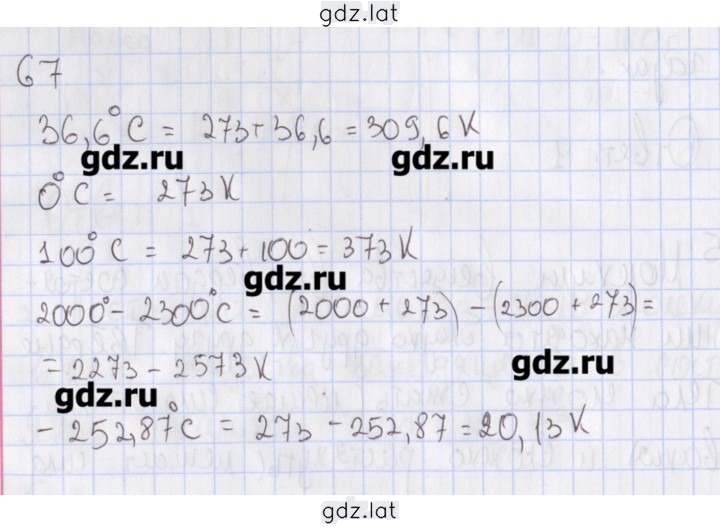 gdz.lat
67
36,6°C = 273+36,6 = 309,6 K
gdz.ru gdz.ru
0°C = 273 K
100°C = 273+100 = 373 K
gdz.ru
2000°- 2300°C = (2000 + 273) - (2300 + 273) =
= 2273 - 2573 K
gdz.ru
gdz.ru
- 252,87°C = 273 - 252,87 = 20,13 K
gdz.lat